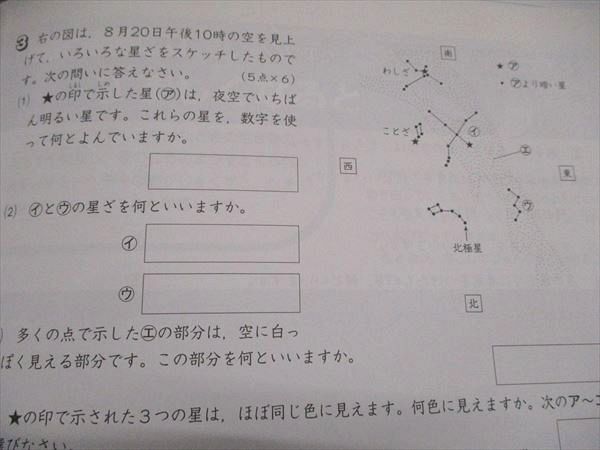 ③ 右の図は，８月20日午後10時の空を見上
げて，いろいろな星ざをスケッチしたもので
す。次の問いに答えなさい。　（５点×６）
⑴ ★の印で示した星(㋐)は，夜空でいちば
ん明るい星です。これらの星を，数字を使
って何とよんでいますか。
⑵ ㋑と㋒の星ざを何といいますか。
㋑
㋒
) 多くの点で示した㋓の部分は，空に白っ
ぽく見える部分です。この部分を何といいますか。
★の印で示された３つの星は，ほぼ同じ色に見えます。何色に見えますか。次のア〜エ
びなさい。
南
わしざ
★㋐
・㋐より暗い星
ことざ
㋑
㋓
西
東
㋒
北極星
北